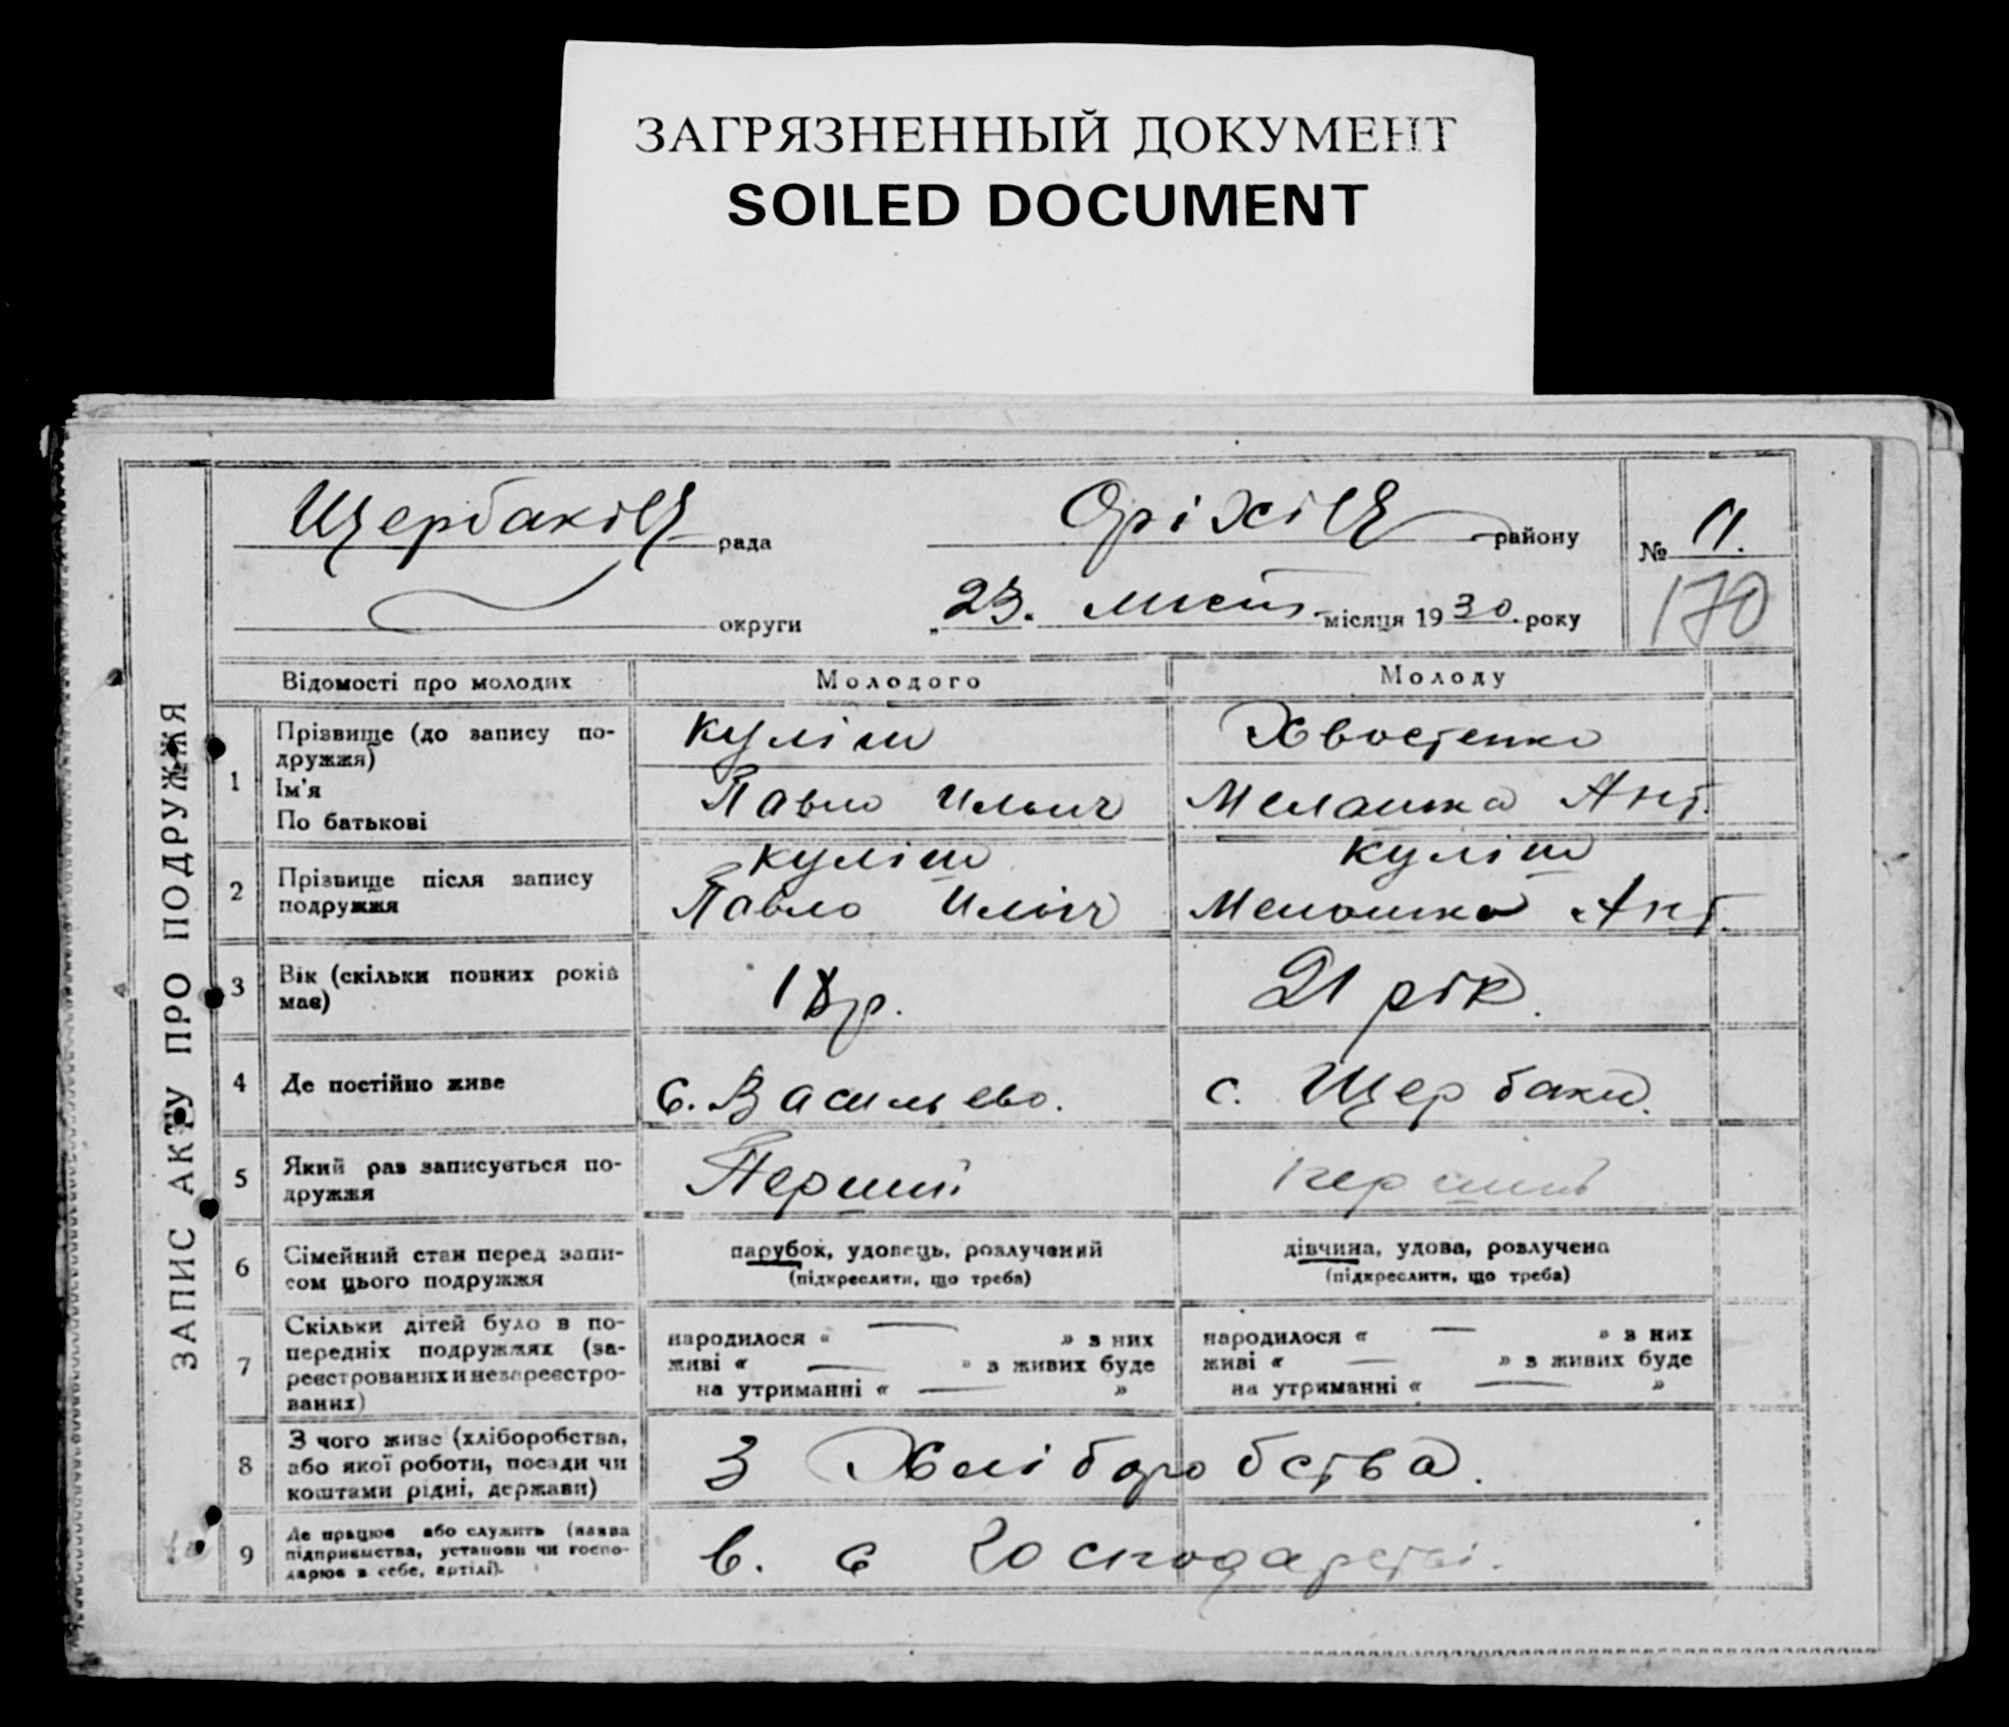 ЗАГРЯЗНЕННЫЙ ДОКУМЕНТ
SOILED DOCUMENT
ЗАПИС АКТУ ПРО ПОДРУЖЖЯ
Щербаків рада Оріхів району № 11.
округи „23. місяця 1930. року 170
Відомості про молодих Молодого Молоду
1 Прізвище (до запису по-
дружжя)
Ім'я
По батькові
Куліш Хвостенко
Павло Ильич Мелашка Ант.
2 Прізвище після запису
подружжя
Куліш Куліш
Павло Ильич Мелашка Ант.
3 Вік (скільки повних років
має)
18 р. 21 рік.
4 Де постійно живе с. Васильево. с. Щербаки.
5 Який раз записується по-
дружжя
Перший перший
6 Сімейний стан перед запи-
сом цього подружжя
парубок, удовець, розлучений
(підкреслити, що треба)
дівчина, удова, розлучена
(підкреслити, що треба)
7 Скільки дітей було в по-
передніх подружжях (за-
реєстрованих и незареєстро-
ваних)
народилося « — » з них
живі « — » з живих буде
на утриманні « — »
народилося « — » з них
живі « — » з живих буде
на утриманні « — »
8 З чого живе (хліборобства,
або якої роботи, посади чи
коштами рідні, держави)
З Хліборобства.
9 Де працює або служить (назва
підприємства, установи чи госпо-
дарює в себе, артілі).
в. с господарстві.